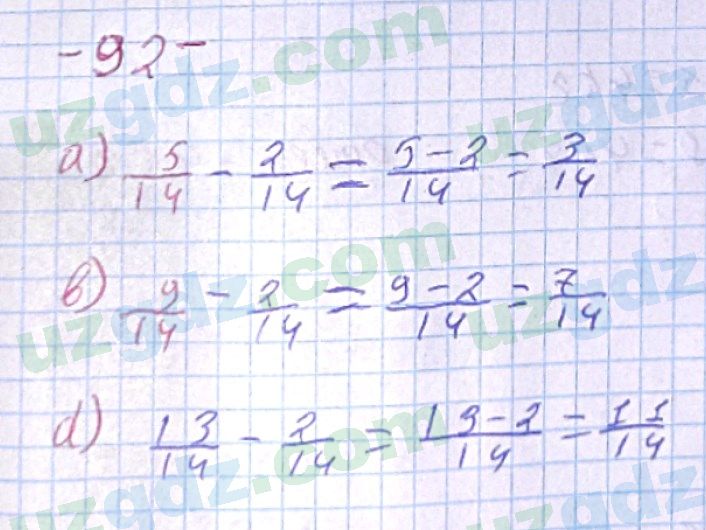 -92-
a) 5/14 - 2/14 = 5-2/14 = 3/14
b) 9/14 - 2/14 = 9-2/14 = 7/14
d) 13/14 - 2/14 = 13-2/14 = 11/14
uzgdz.com
uzgdz
uzgdz.com
uzgdz
uzgdz.com
uzgdz